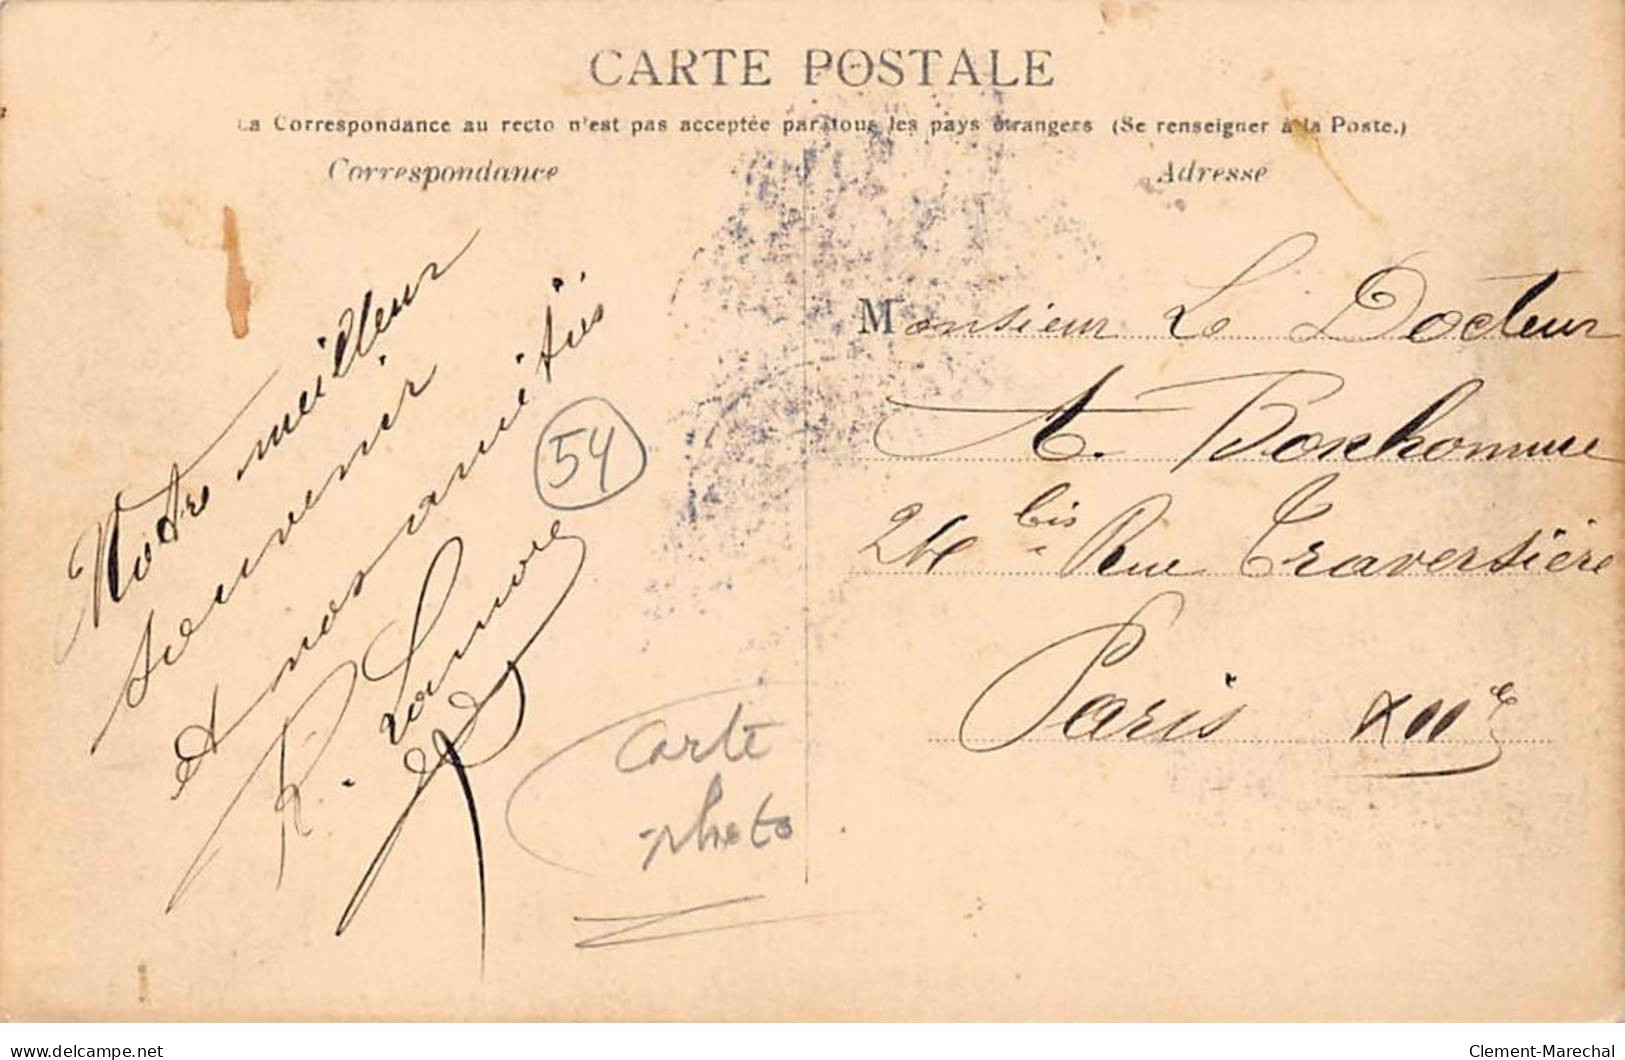 CARTE POSTALE
La Correspondance au recto n'est pas acceptée par tous les pays étrangers (Se renseigner à la Poste.)
Correspondance
Adresse
Notre meilleur
souvenir
et nos amitiés
R.
54
Carte
photo
Monsieur Le Docteur
A. Bonhomme
24 bis Rue Traversière
Paris XIIe
delcampe.net
Clement-Marechal